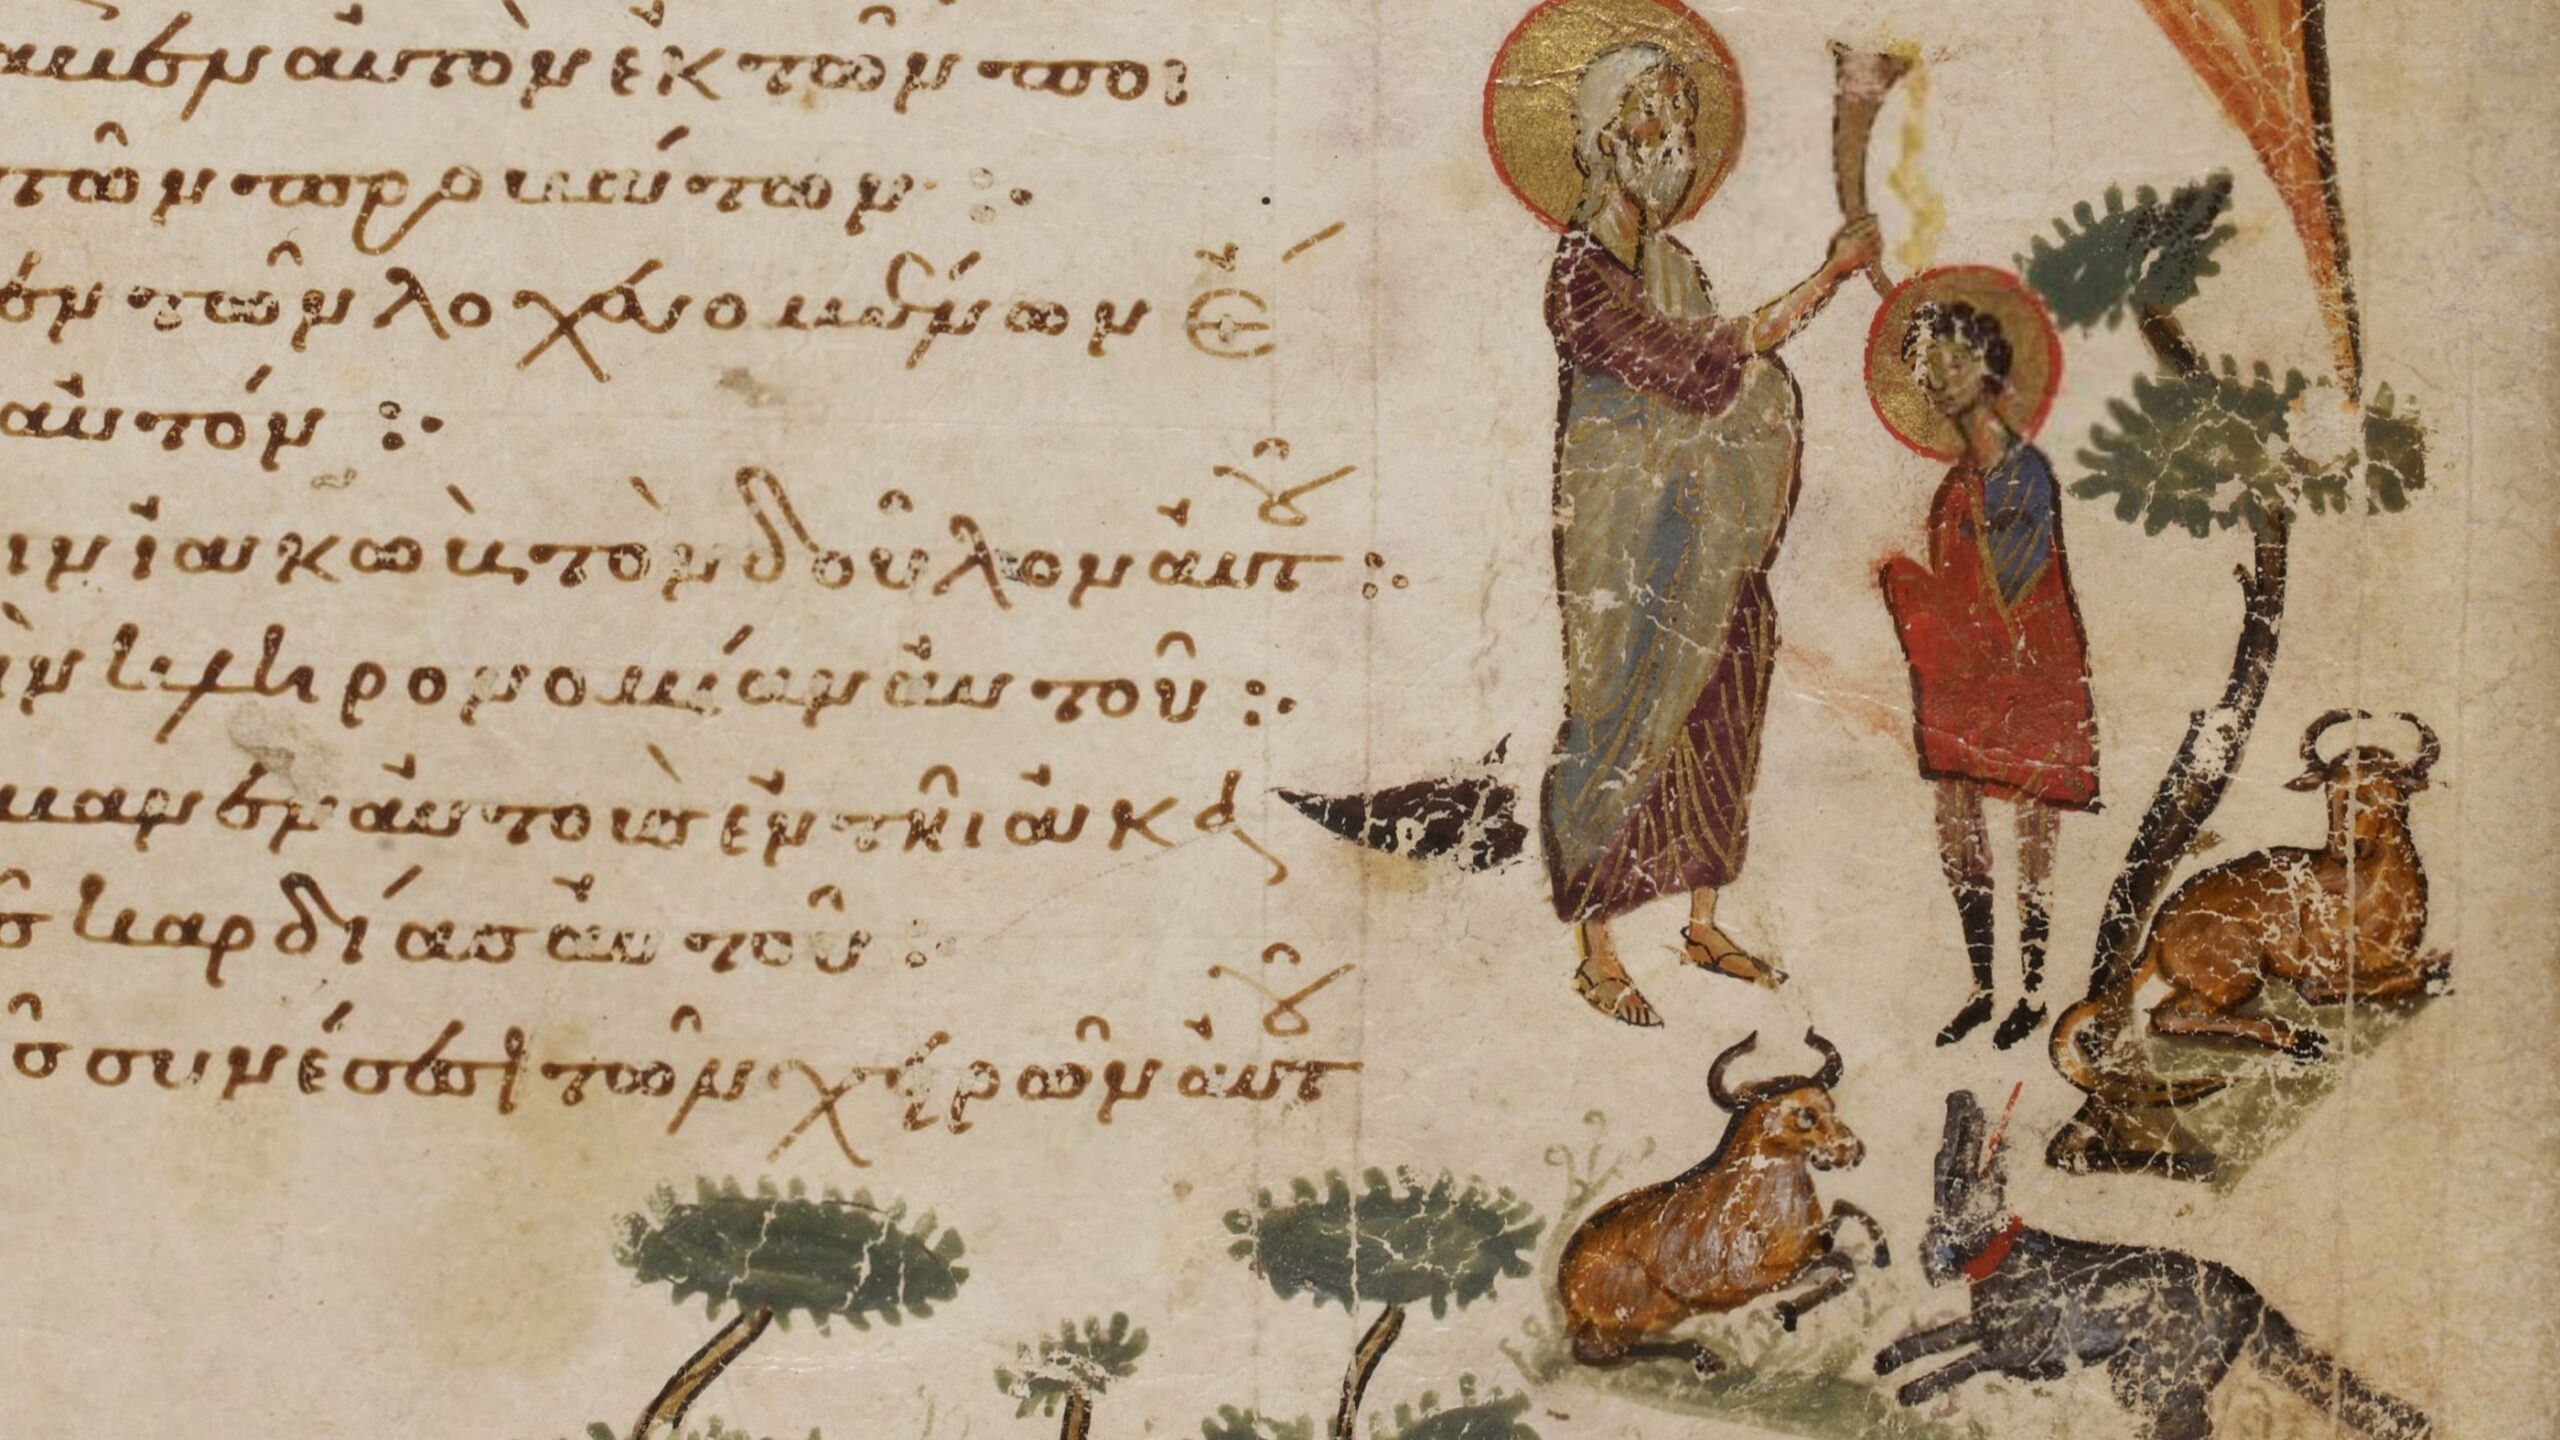 αβεν αὐτὸν ἐκ τῶν ποι
τῶν προβάτων :·
εν τῶν λοχευομένων ἔ
αὐτόν :·
ιν ἰακὼβ τὸν δοῦλον αὐτοῦ :·
ὴν κληρονομίαν αὐτοῦ :·
μανεν αὐτοὺς ἐν τῆ ἀκα
ς καρδίας αὐτοῦ :·
ς συνέσεσι τῶν χειρῶν αὐτοῦ